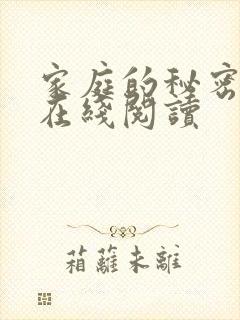 家庭的秘密
在綫閱讀
葙蘿未離